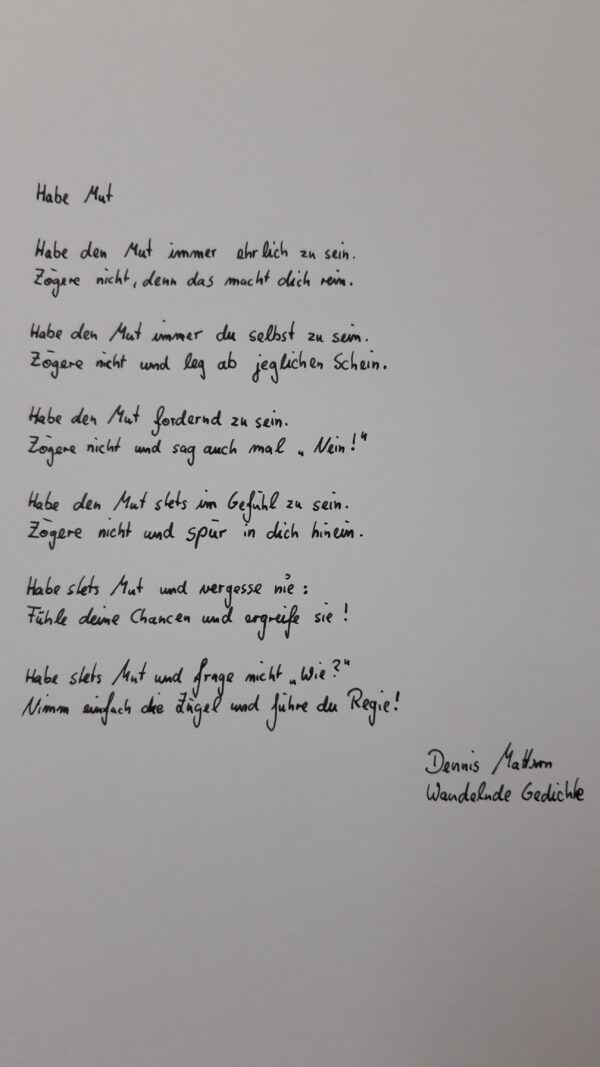 Habe Mut
Habe den Mut immer ehrlich zu sein.
Zögere nicht, denn das macht dich rein.
Habe den Mut immer du selbst zu sein.
Zögere nicht und leg ab jeglichen Schein.
Habe den Mut fordernd zu sein.
Zögere nicht und sag auch mal „Nein!“
Habe den Mut stets im Gefühl zu sein.
Zögere nicht und spür in dich hinein.
Habe stets Mut und vergesse nie:
Fühle deine Chancen und ergreife sie!
Habe stets Mut und frage nicht „Wie?“
Nimm einfach die Zügel und führe du Regie!
Dennis
Wandelnde Gedichte